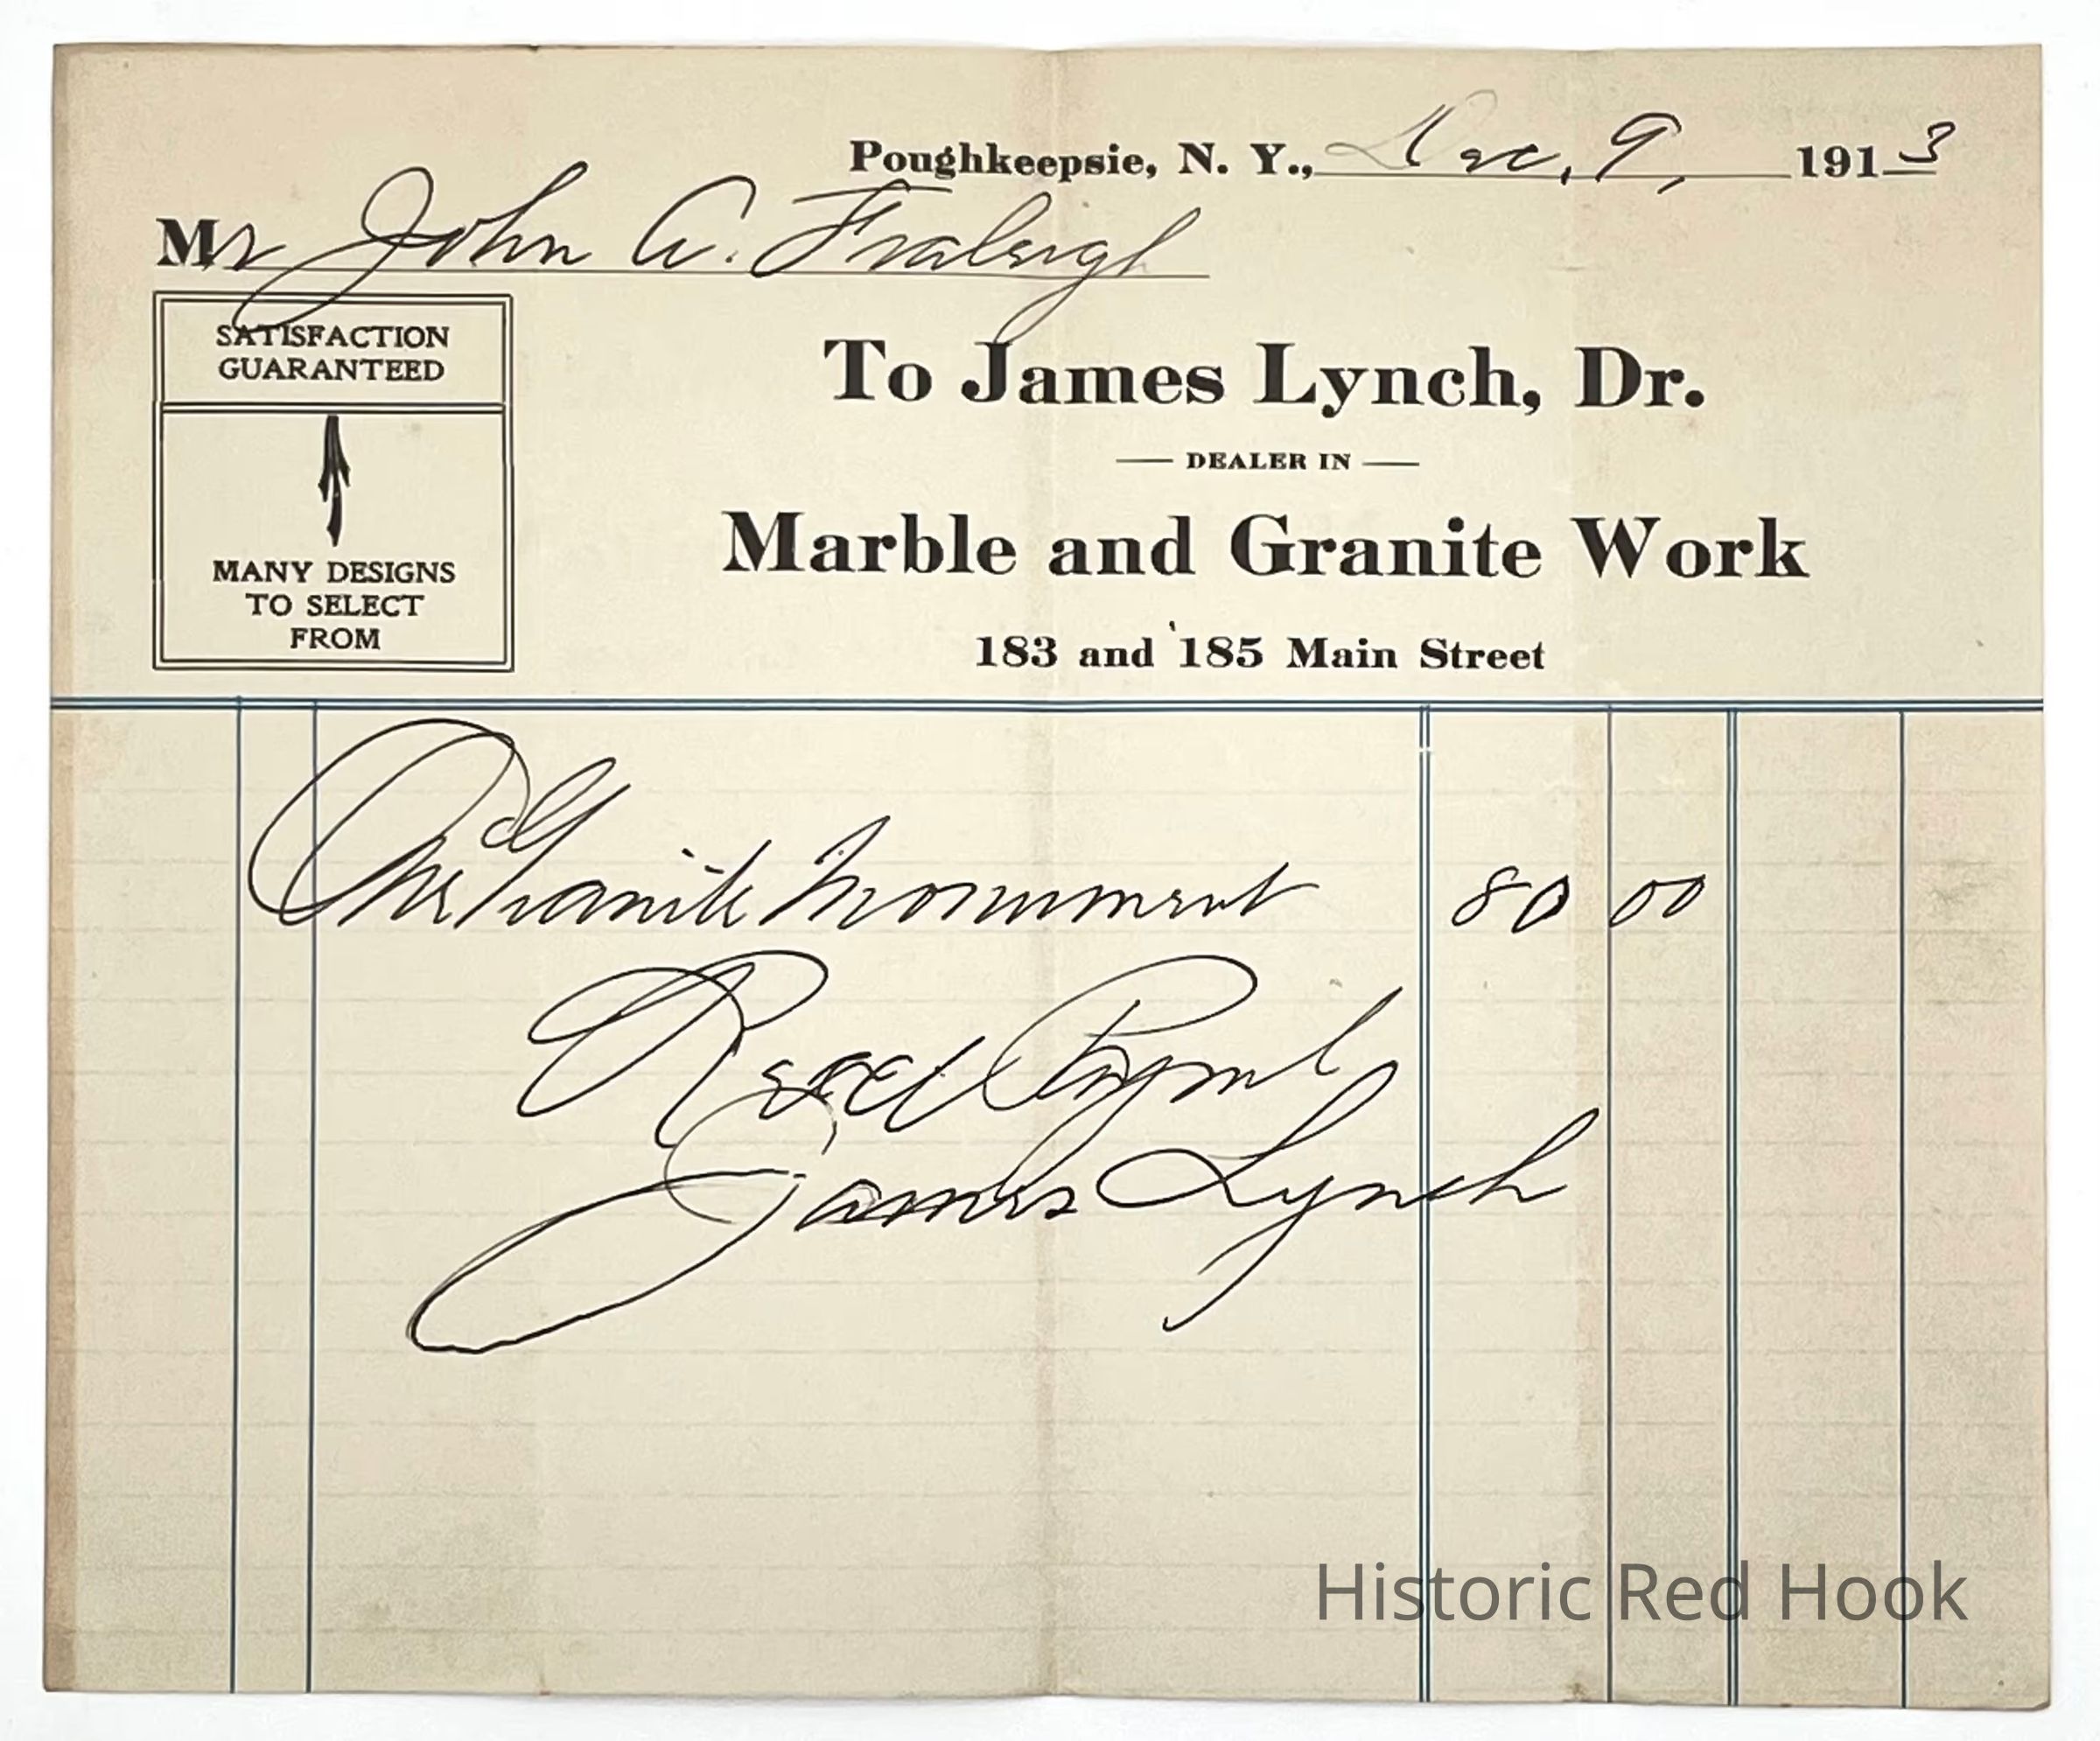 Poughkeepsie, N. Y., Dec, 9, 1913
Mr John A. Fraleigh
SATISFACTION
GUARANTEED
MANY DESIGNS
TO SELECT
FROM
To James Lynch, Dr.
DEALER IN
Marble and Granite Work
183 and 185 Main Street
One Granite Monument 80 00
Recd Paymt
James Lynch
Historic Red Hook